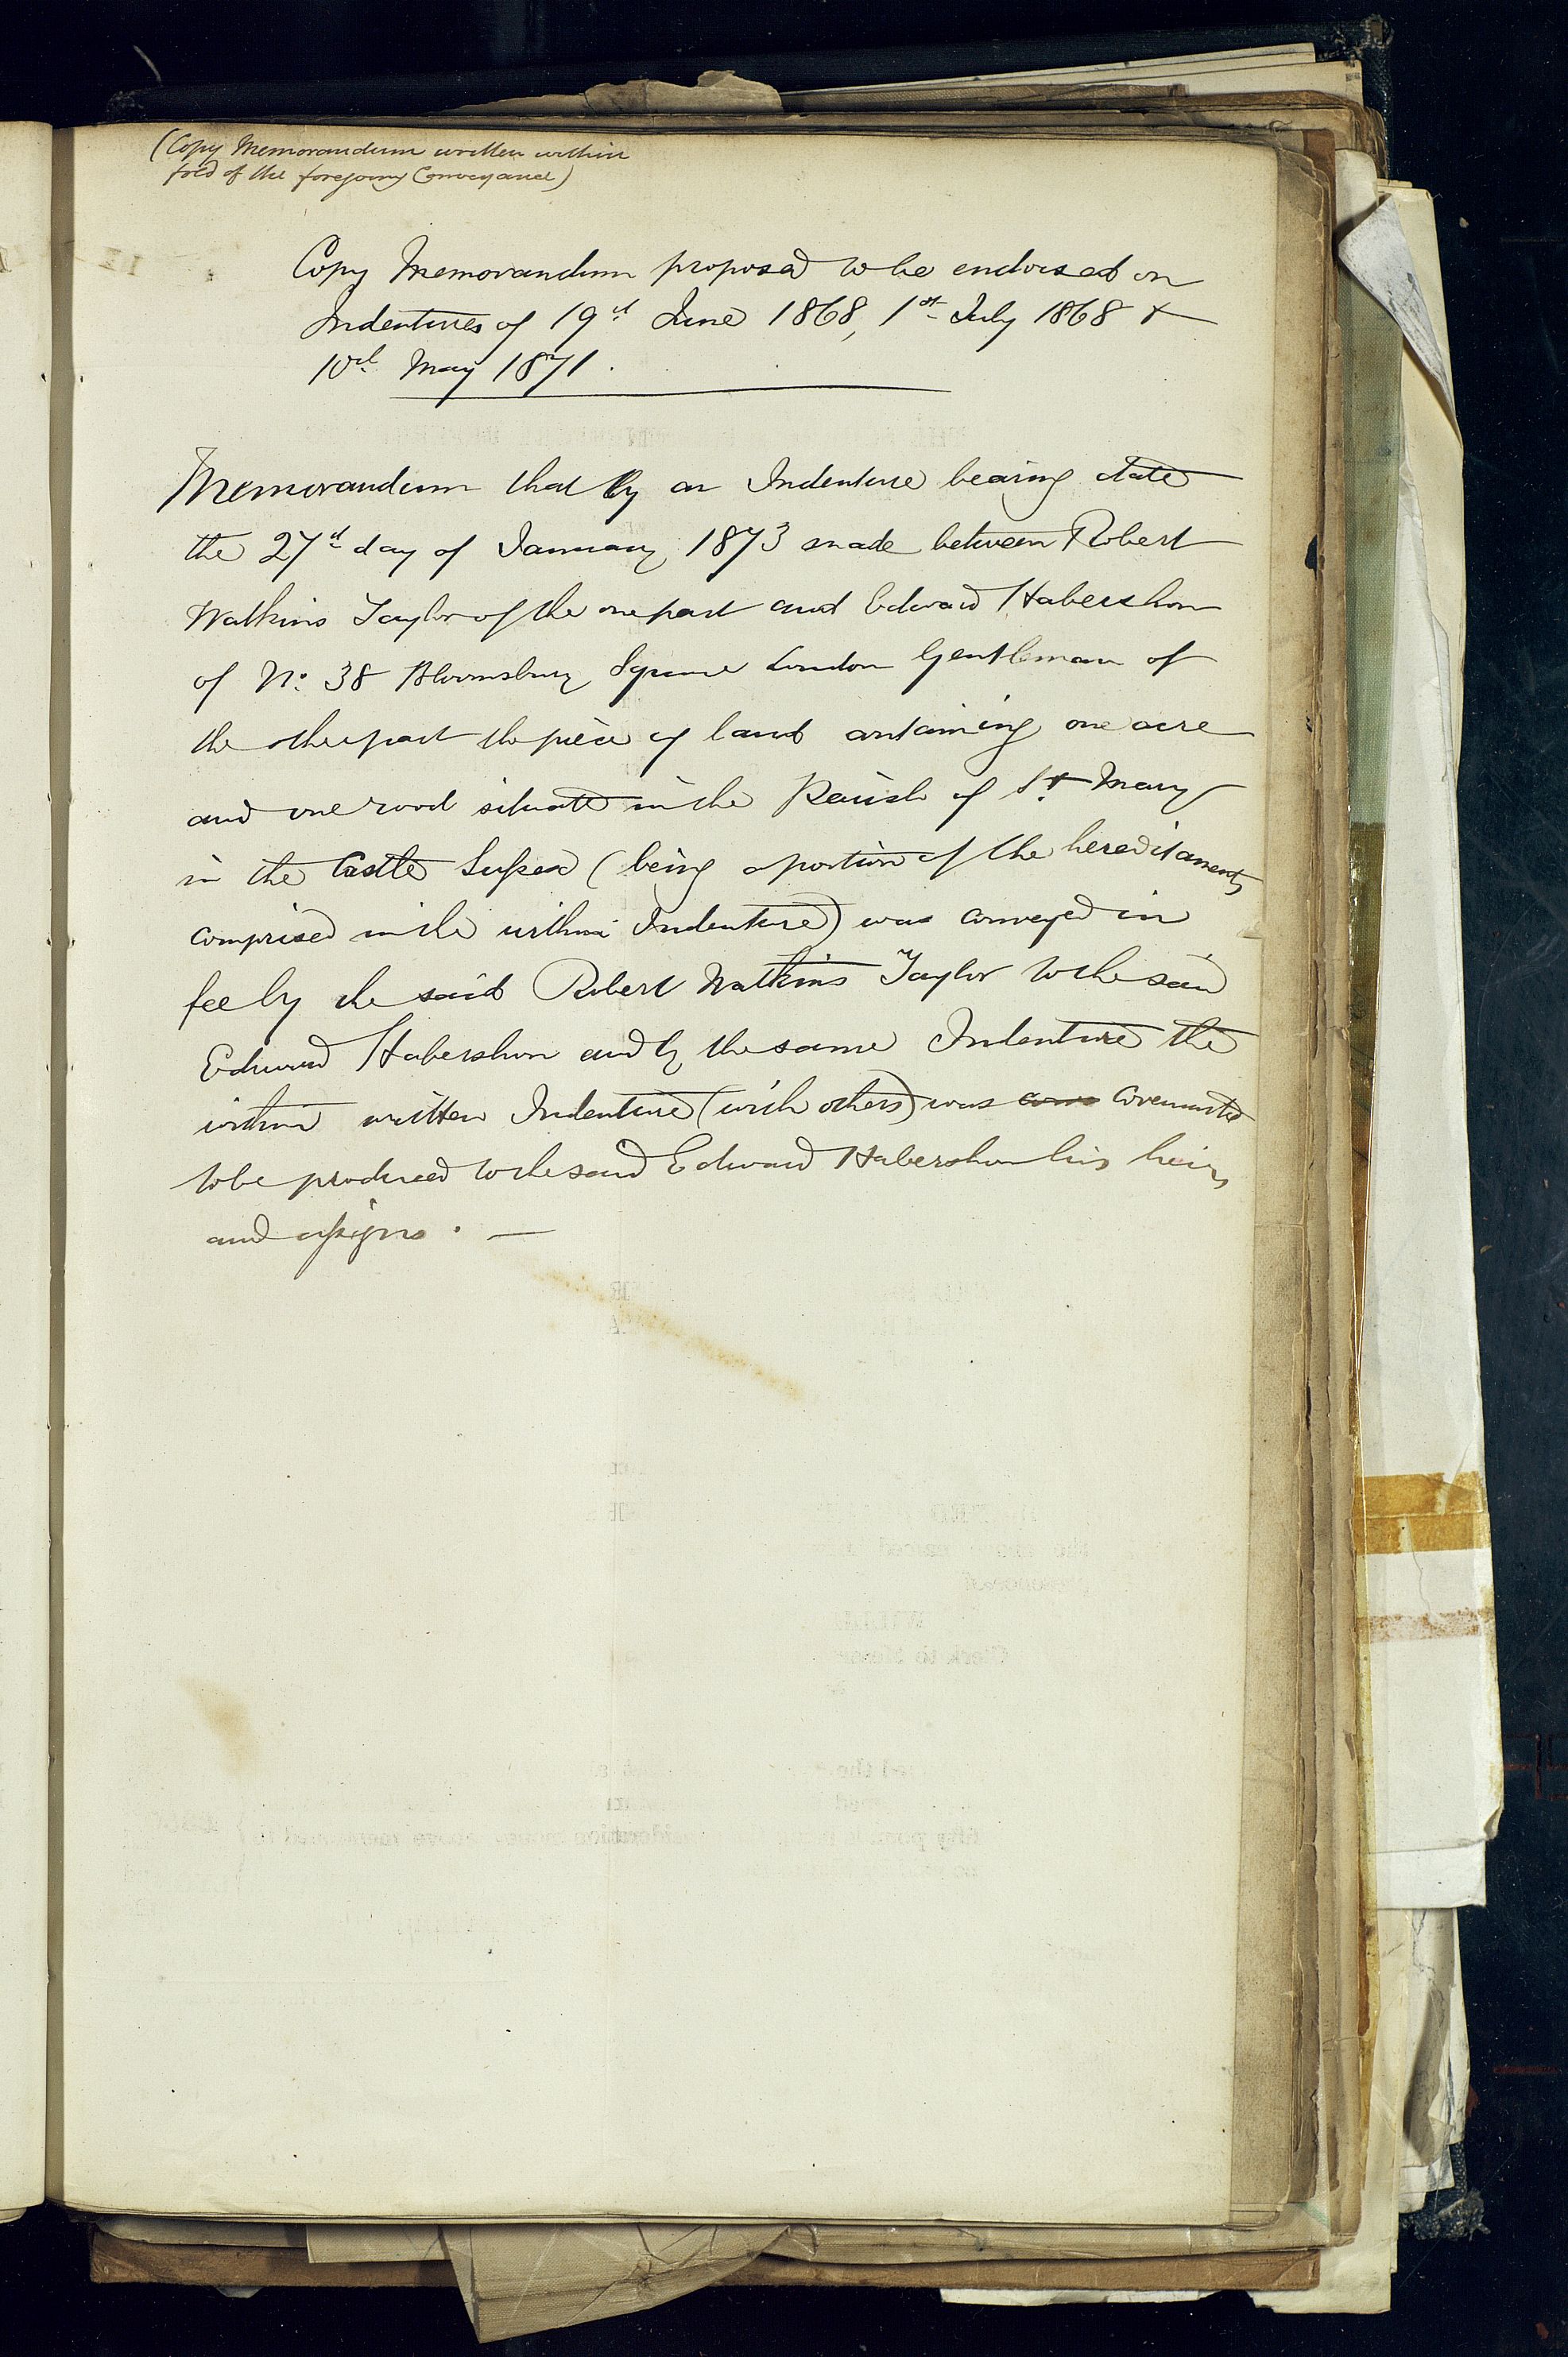 (Copy Memorandum written within
fold of the foregoing Conveyance)
Copy Memorandum proposed to be endorsed on
Indentures of 19th June 1868, 1st July 1868 &
10th May 1871.
Memorandum that by an Indenture bearing date
the 27th day of January 1873 made between Robert
Watkins Taylor of the one part and Edward Habershon
of No. 38 Bloomsbury Square London Gentleman of
the other part the piece of land containing one acre
and one rood situate in the Parish of St Mary
in the Castle Sussex (being a portion of the hereditaments
comprised in the within Indenture) was conveyed in
fee by the said Robert Watkins Taylor to the said
Edward Habershon and by the same Indenture the
within written Indenture (with others) was covenanted
to be produced to the said Edward Habershon his heirs
and assigns. —